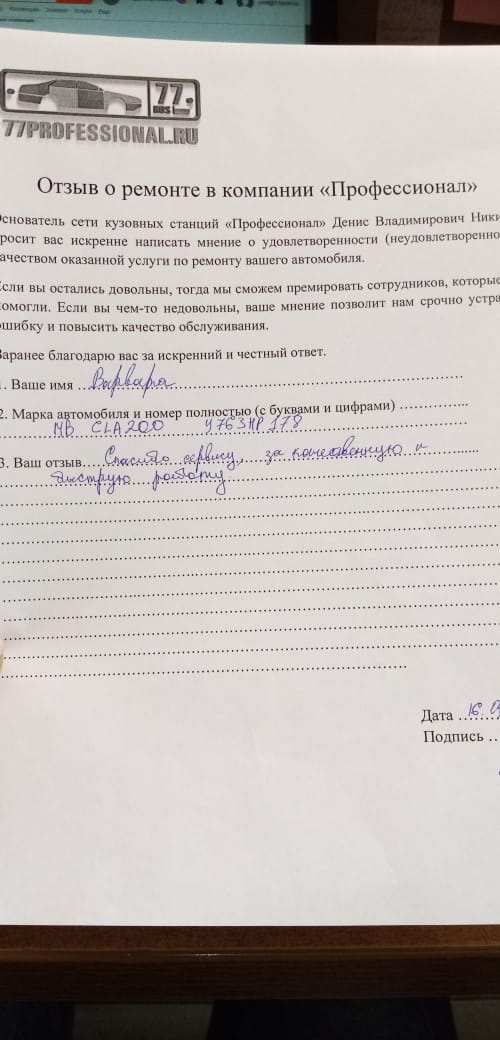 77
RUS
77PROFESSIONAL.RU
Отзыв о ремонте в компании «Профессионал»
Основатель сети кузовных станций «Профессионал» Денис Владимирович Ники
просит вас искренне написать мнение о удовлетворенности (неудовлетворенно
качеством оказанной услуги по ремонту вашего автомобиля.
Если вы остались довольны, тогда мы сможем премировать сотрудников, которые
помогли. Если вы чем-то недовольны, ваше мнение позволит нам срочно устра
ошибку и повысить качество обслуживания.
Заранее благодарю вас за искренний и честный ответ.
1. Ваше имя Варвара
2. Марка автомобиля и номер полностью (с буквами и цифрами)
MB CLA200 У763НР178
3. Ваш отзыв Спасибо сервису, за качественную и
быструю работу
Дата 16.0
Подпись